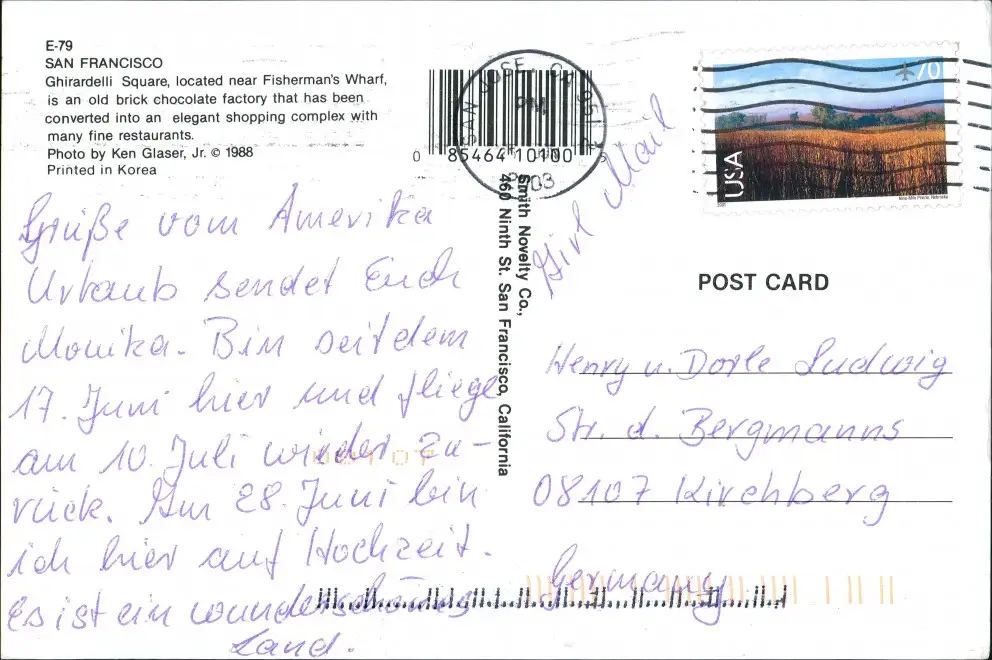 E-79
SAN FRANCISCO
Ghirardelli Square, located near Fisherman's Wharf,
is an old brick chocolate factory that has been
converted into an elegant shopping complex with
many fine restaurants.
Photo by Ken Glaser, Jr. © 1988
Printed in Korea
Grüße vom Amerika
Urlaub sendet Euch
Monika. Bin seit dem
17. Juni hier und fliege
am 10. Juli wieder zu-
rück. Am 28. Juni bin
ich hier auf Hochzeit.
Es ist ein wunderschönes
Land.
SAN JOSE, CA 951
PM
2003
0 85464 10100 5
Smith Novelty Co.,
460 Ninth St. San Francisco, California
Girl Mail
70
USA
Nine-Mile Prairie, Nebraska
POST CARD
Henry u. Dorle Ludwig
Str. d. Bergmanns
08107 Kirchberg
Germany